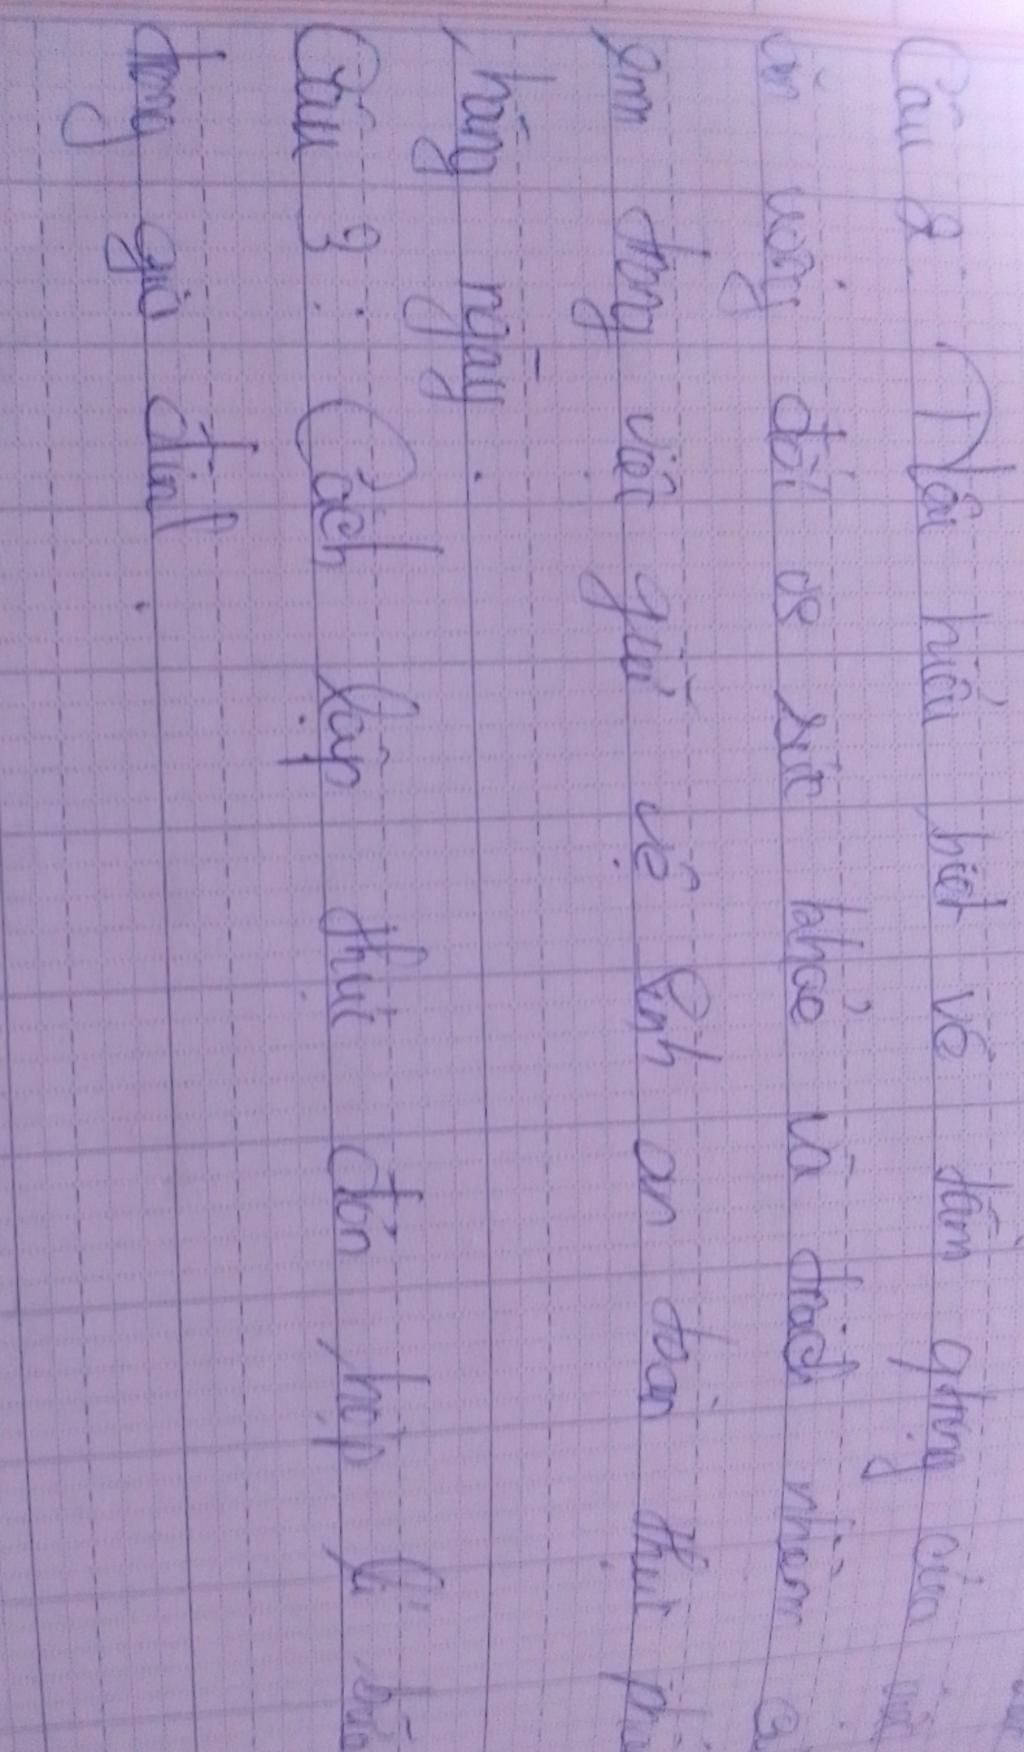 Câu 2: Nêu hiểu biết về tầm qtrọng của việc
ăn uống đối vs sức khoẻ và trách nhiệm của
em trong việc giữ vệ sinh an toàn thực
hằng ngày.
Câu 3: Cách lập thực đơn hợp lí
trong gia đình.